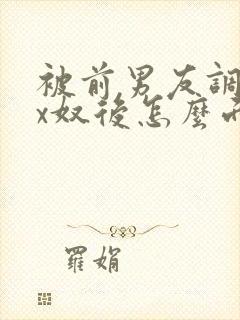 被前男友調
x奴後怎麼
羅娟